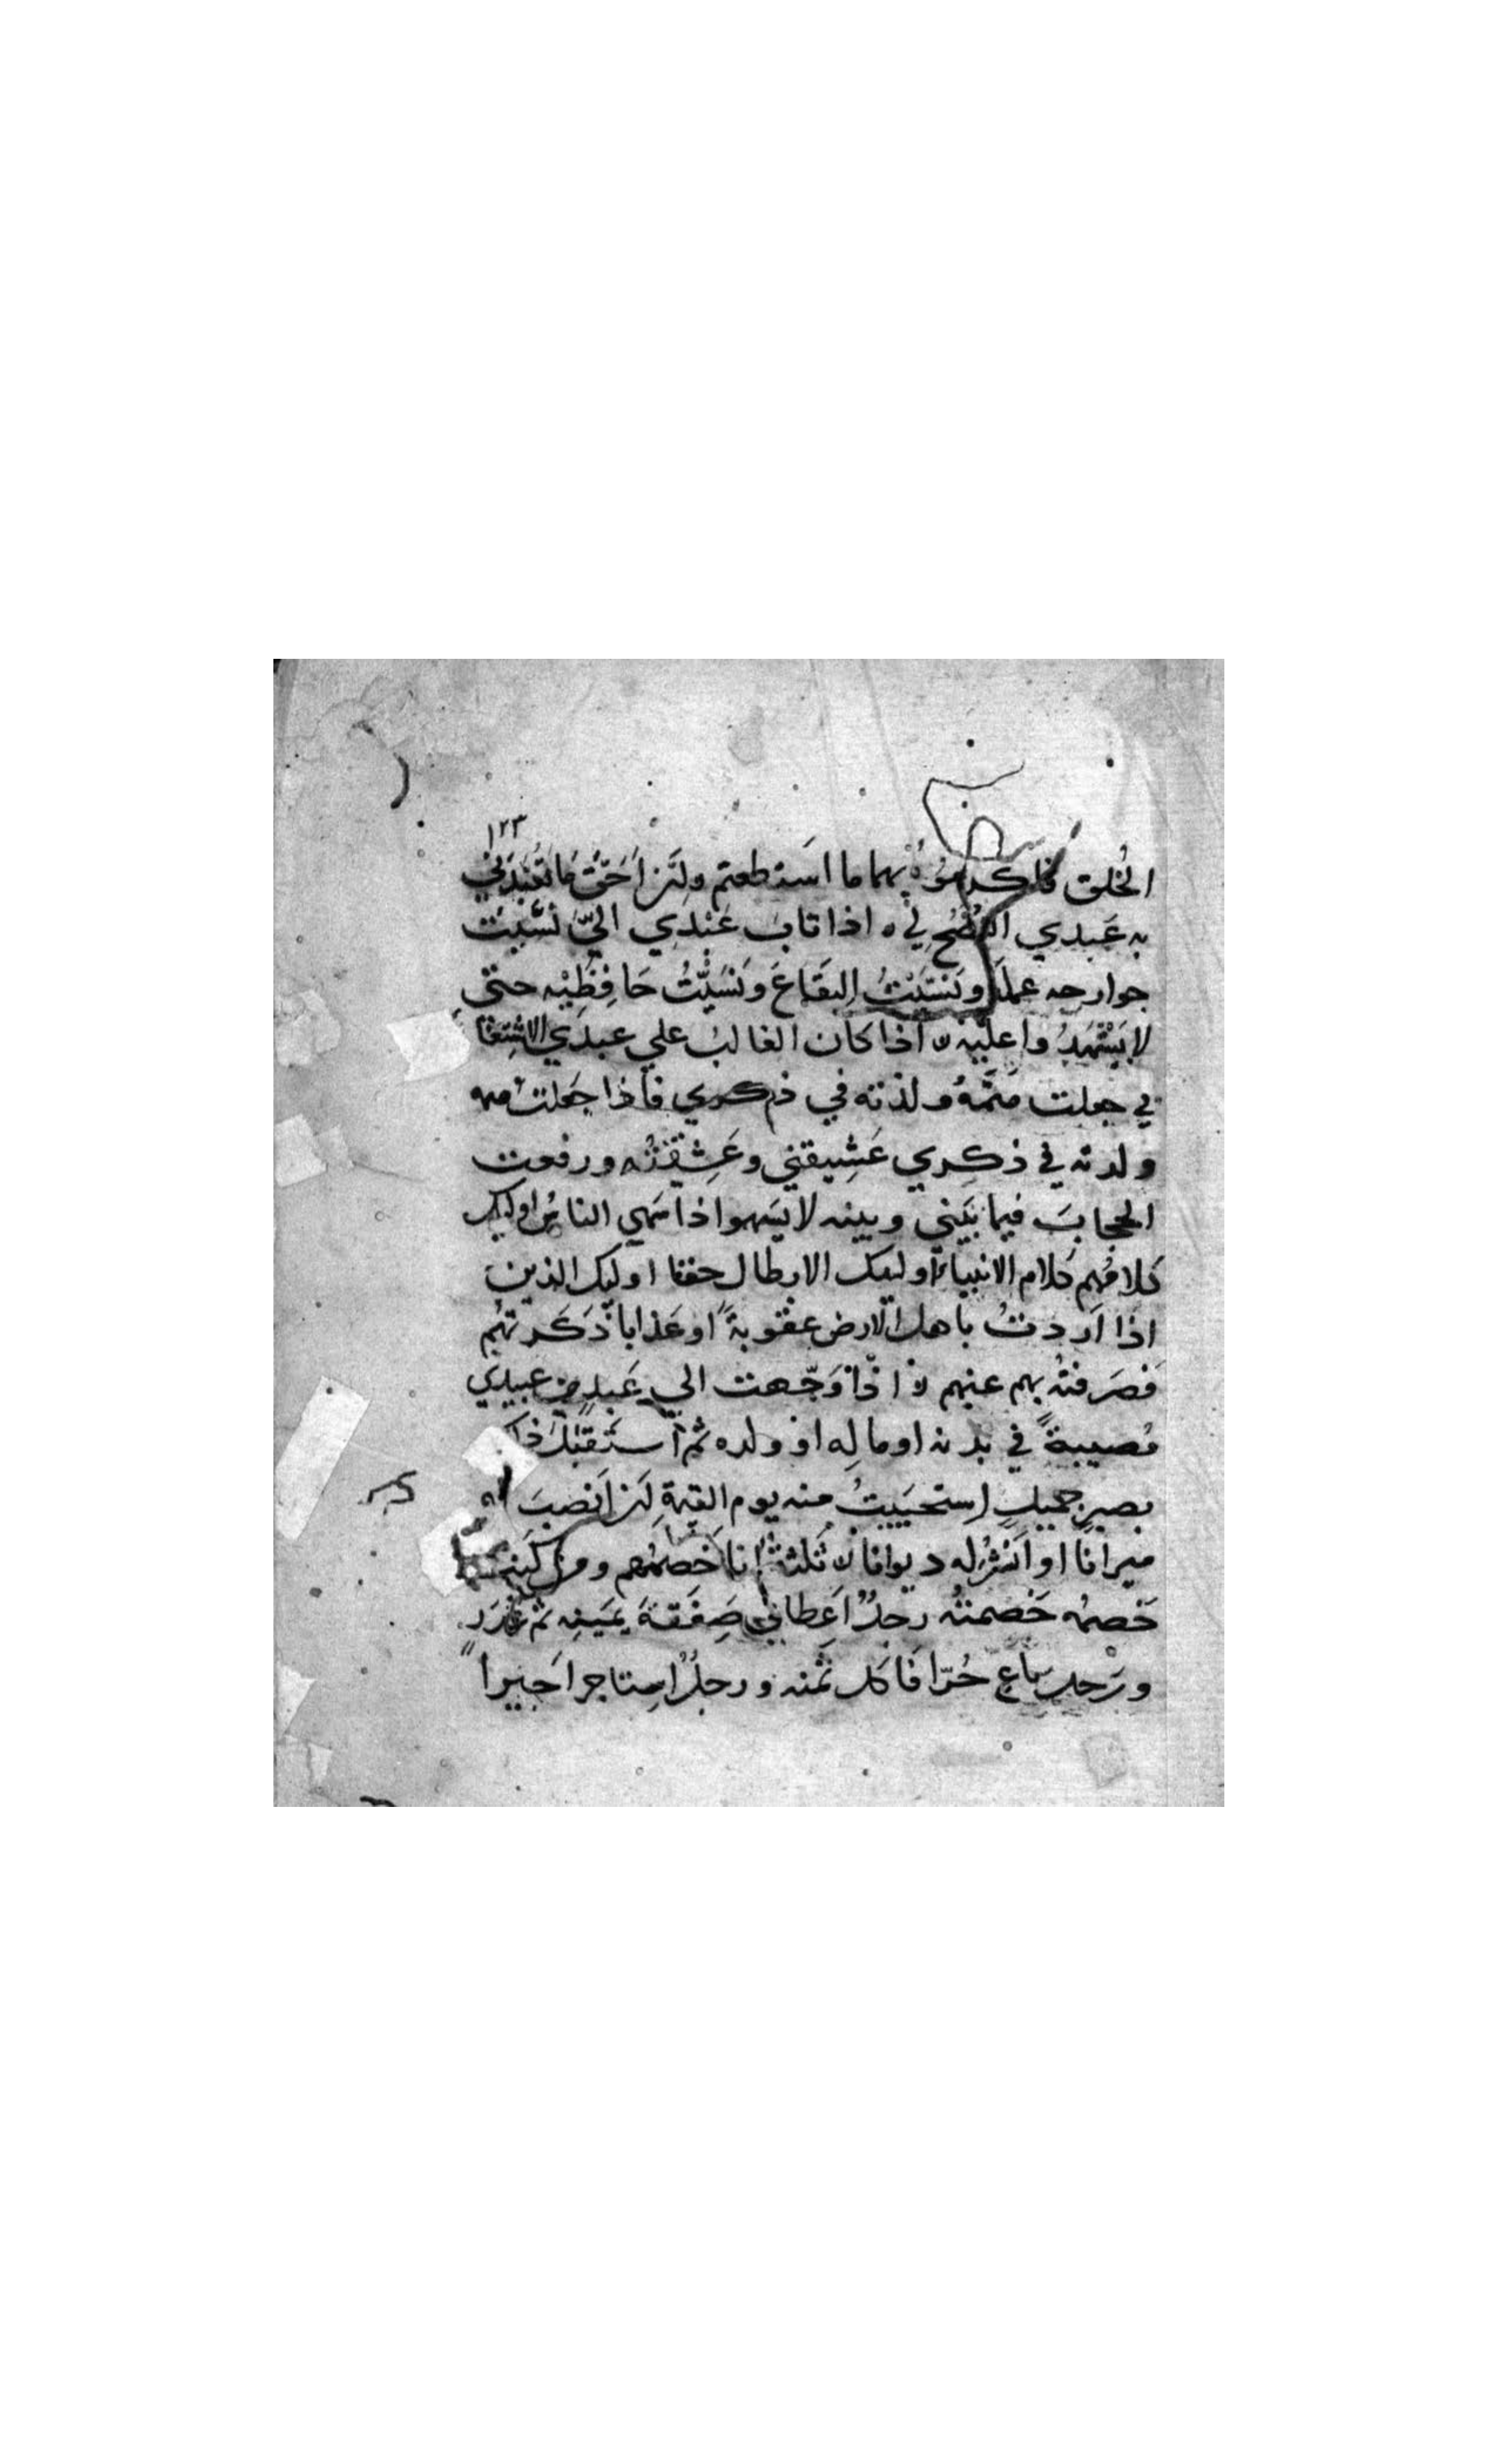 ١٢٣
الخُلق فاكرموُه بهما ما استطعتم ولن اَحَقّ مَا تَعَبّدَني
به عَبدي النُصُح لي ه اذا تاب عَبْدِي اليّ نَسَّيتُ
جوارحه عمله ونَسّيْتُ البقَاعَ ونَسّيْتُ حَافِظِيْه حتي
لا يَشْهَدُوا عليه ٥ اذا كان الغالبُ علي عبدي الاشتِغا
بي جعلت همَّهُ ولذته في ذكري فاذا جَعلت همه
ولدته في ذكري عَشِيقني وعَشِقْتُه ورفعت
الحجابَ فيما بَيني وبينه لا يَسهوا اذا سَهي الناسُ اوليك
كلامُهم كَلام الانبياء اوليك الابطال حقا اوليك الذين
اذا اَردتُ باهل الارض عقوبةً او عَذاباً ذَكَرتهُم
فصَرفتُه بهم عنهم ٥ اذا وَجّهت الي عَبدٍ من عبيدي
مُصيبةً في بدنه او مالِه او ولده ثم استَقبَل ذلك
بصبرٍ جميلٍ استحيَيتُ منه يوم القيمةِ اَن اَنصبَ له
ميزاناً او اَنشُرَ له ديوانا ٥ ثَلثةٌ انا خَصمُهم ومن كنتُ
خَصمُه خَصمتُه رجلٌ اَعطاني صَفقَةَ يمَينِه ثم غَدَرَ
ورَجل بَاعَ حُرّا فَاكل ثمنه ورجلٌ استاجر اَجيراً